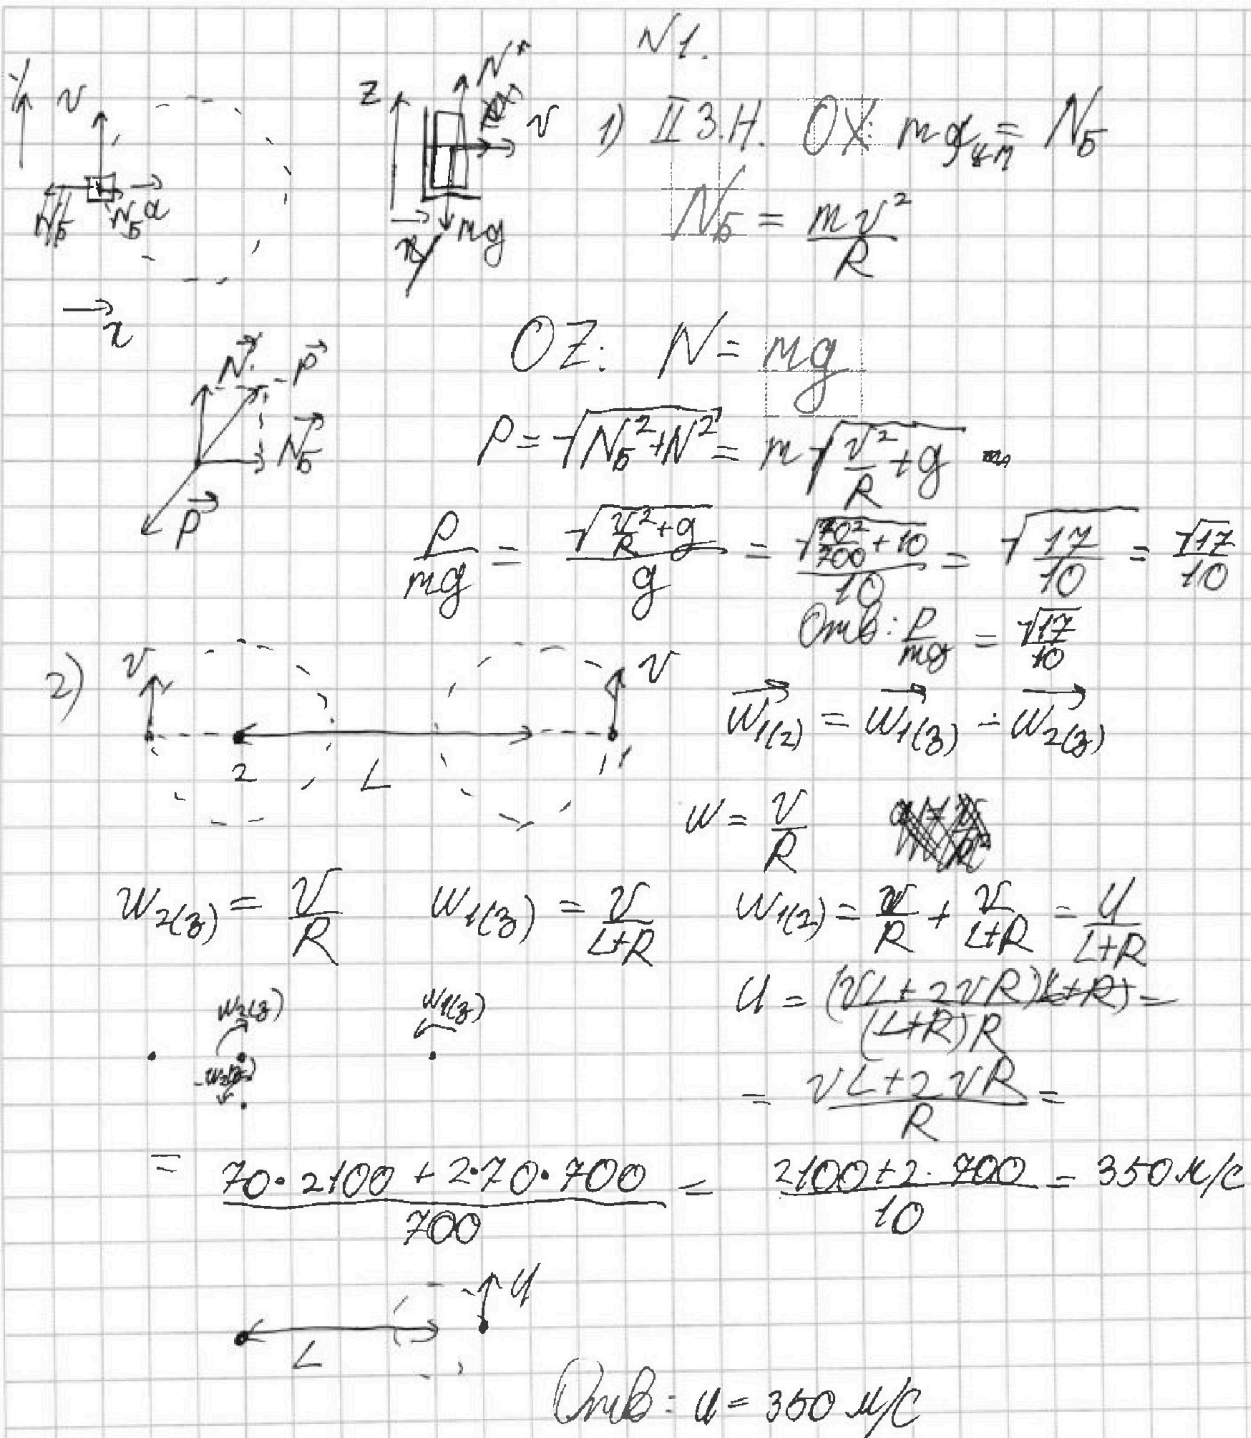 N1.
Y v z N v
1) II З.Н. OX: ma_{цп} = N_Б
N_Б N_Б a x mg
N_Б = \frac{mv^2}{R}
x
OZ: N = mg
N P N_Б P
P = \sqrt{N_Б^2 + N^2} = m\sqrt{\frac{v^2}{R} + g}
\frac{P}{mg} = \frac{\sqrt{\frac{v^2}{R} + g}}{g} = \frac{\sqrt{\frac{70^2}{700} + 10}}{10} = \sqrt{\frac{17}{10}} = \frac{\sqrt{17}}{10}
Отв: \frac{P}{mg} = \frac{\sqrt{17}}{10}
2) v v 2 L 1
\vec{W_{1(2)}} = \vec{W_{1(з)}} - \vec{W_{2(з)}}
W = \frac{v}{R}
W_{2(з)} = \frac{v}{R} W_{1(з)} = \frac{v}{L+R} W_{1(2)} = \frac{v}{R} + \frac{v}{L+R} = \frac{U}{L+R}
W_{2(з)} W_{1(з)}
U = \frac{(vL + 2vR)(L+R)}{(L+R)R} =
-W_{2(з)}
= \frac{vL + 2vR}{R} =
= \frac{70·2100 + 2·70·700}{700} = \frac{2100 + 2·700}{10} = 350 м/с
U
L
Отв: U = 350 м/с